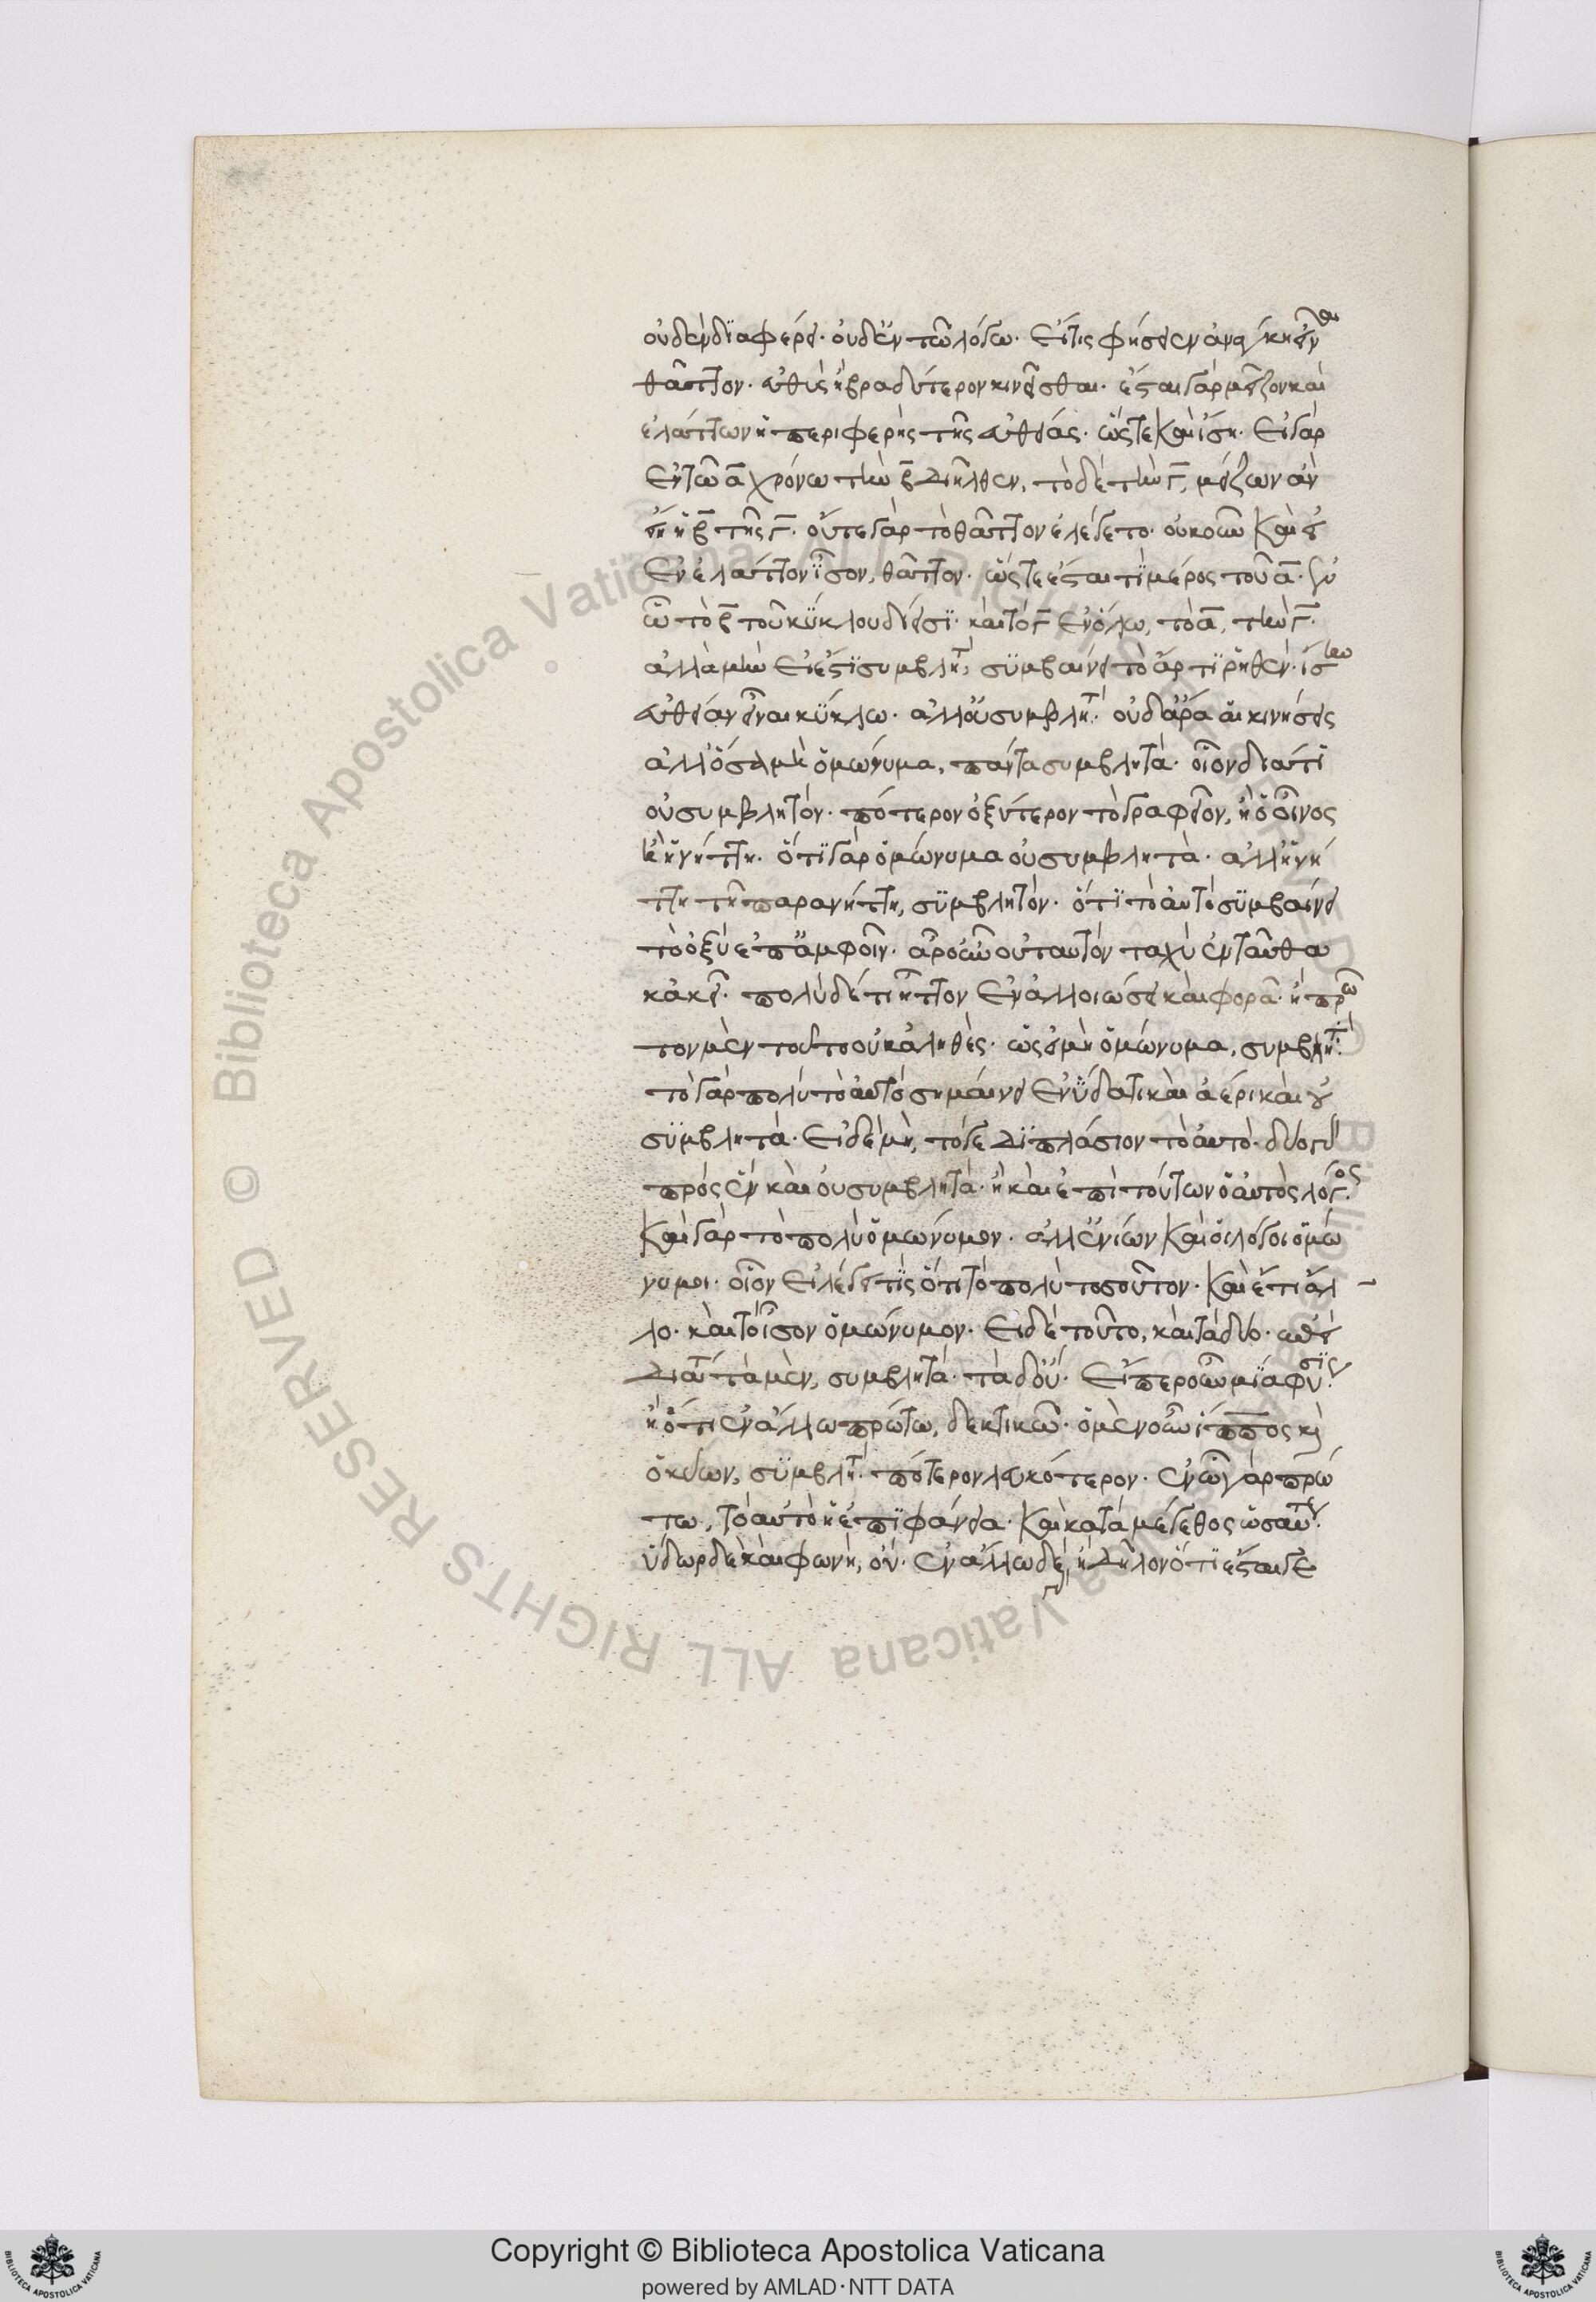 οὐδὲν διαφέρει· οὐδὲν τῶ λόγω· Εἴ τις φήσειεν ἀνάγκην εἶναι
θᾶττον· εὐθὺς ἢ βραδύτερον κινεῖσθαι· ἔσται γὰρ μεῖζον καὶ
ἐλάττων ἡ περιφερὴς τῆς εὐθείας· ὥστε καὶ ἴση· Εἰ γὰρ
Ἐν τῶ α χρόνω τὴν β διῆλθεν, τὸ δὲ τὴν γ, μείζων ἂν
εἴη ἡ β τῆς γ· οὕτε γὰρ τὸ θᾶττον ἐλέγετο· οὐκοῦν καὶ εἰ
Ἐν ἐλάττον ἴσον, θᾶττον· ὥστε ἔσται τὶ μέρος τοῦ α· ἐν
ὧ τὸ β τοῦ κύκλου δίεισι· καὶ τὸ γ ἐν ὅλω, τὸ α, τὴν γ·
ἀλλὰ μὴν εἰ ἔστι συμβλητὰ, συμβαίνει τὸ ἄρτι ῥηθὲν· ἴσην
εὐθείαν εἶναι κύκλω· ἀλλ' οὐ συμβλητὰ· οὐδ' ἄρα αἱ κινήσεις
ἀλλ' ὅσα μὴ ὁμώνυμα, πάντα συμβλητὰ· οἷον διατί
οὐ συμβλητὸν· πότερον ὀξύτερον τὸ γραφεῖον, ἢ ὁ οἶνος
ἢ ἡ νήτη· ὅτι γὰρ ὁμώνυμα οὐ συμβλητὰ· ἀλλ' ἡ νή
τη τῆ παρανήτη, συμβλητὸν· ὅτι τὸ αὐτὸ συμβαίνει
τὸ ὀξὺ ἐπ' ἀμφοῖν· ἆρ' οὖν οὐ ταυτὸν ταχὺ ἐνταῦθα
κἀκεῖ· πολὺ δέ τι ἧττον ἐν ἀλλοιώσει καὶ φορᾶ· ἢ πρῶ
τον μὲν τοῦτο οὐκ ἀληθὲς· ὡς εἰ μὴ ὁμώνυμα, συμβλητὰ·
τὸ γὰρ πολὺ τὸ αὐτὸ σημαίνει ἐν ὕδατι καὶ ἀέρι καὶ οὐ
συμβλητὰ· Εἰ δὲ μὴ, τό γε διπλάσιον τὸ αὐτὸ· δύο γὰρ
πρὸς ἓν καὶ οὐ συμβλητὰ· ἢ καὶ ἐπὶ τούτων ὁ αὐτὸς λόγος·
Καὶ γὰρ τὸ πολὺ ὁμώνυμον· ἀλλ' ἐνίων καὶ οἱ λόγοι ὁμώ
νυμοι· οἷον εἰ λέγει τὶς ὅτι τὸ πολὺ τοσοῦτον· καὶ ἔτι ἄλ
λο· καὶ τὸ ἴσον ὁμώνυμον· Εἰ δὲ τοῦτο, καὶ τὰ δύο· εὐθὺς
διατί τὰ μὲν, συμβλητὰ· τὰ δ' οὔ· Εἴπερ οὖν μία φύσις·
ἢ ὅτι ἐν ἄλλω πρώτω, δεκτικῶ· ὁ μὲν οὖν ἵππος καὶ
ὁ κύων, συμβλητὰ· πότερον λευκότερον· ἐν ὧ γὰρ πρώ
τω, τὸ αὐτὸ ἡ ἐπιφάνεια· Καὶ κατὰ μέγεθος ὡσαύτως·
ὕδωρ δὲ καὶ φωνὴ, οὐ· ἐν ἄλλω δὲ, ἢ δῆλον ὅτι ἔσται γε